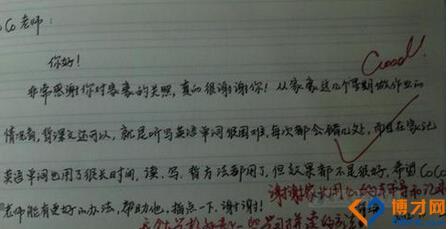 CoCo老师:
你好!
Good!
非常感谢你对家豪的关照,真的很谢谢你!从家豪这几个星期做作业的
情况看,背课文还可以,就是听写英语单词很困难,每次都会错几处,而且在家记
英语单词也用了很长时间,读、写、背方法都用了,但效果都不是很好,希望CoCo
谢谢家长用心的
老师能有更好的办法,帮助他,指点一下,谢谢!
博才网